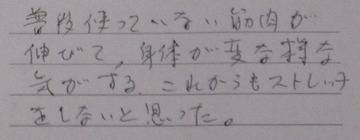 普段使っていない筋肉が
伸びて、身体が変な様な
気がする。これからもストレッチ
をしないと思った。